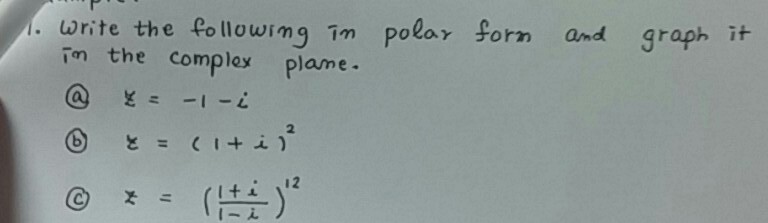 1. Write the following in polar form and graph it
in the complex plane.
ⓐ z = -1 - i
ⓑ z = (1 + i)²
ⓒ z = ((1 + i)/(1 - i))¹²